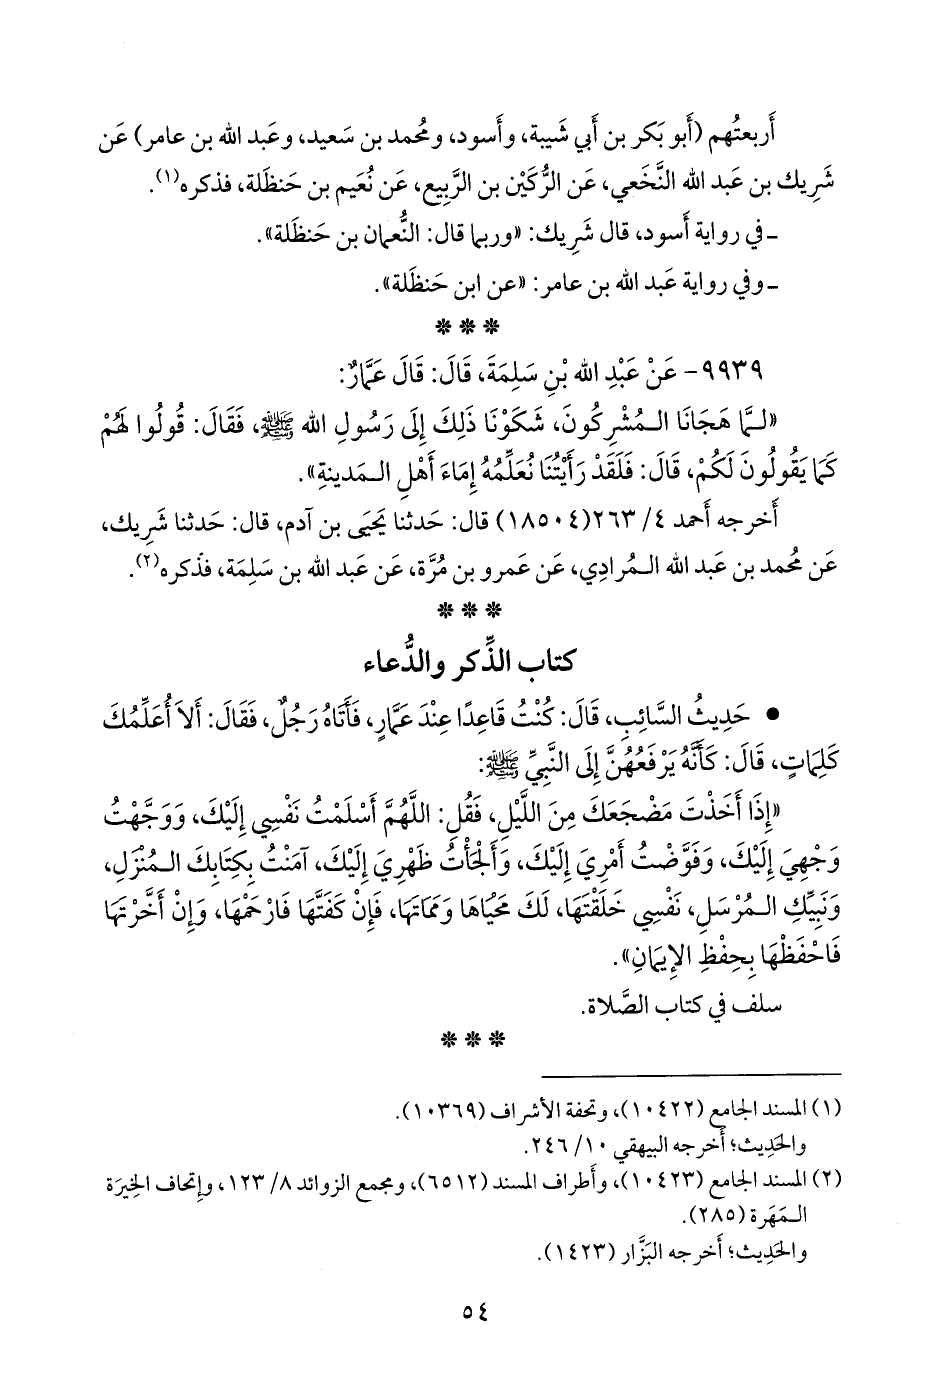 أَربعتُهم (أَبو بَكر بن أَبي شَيبة، وأَسود، ومُحمد بن سَعيد، وعَبد الله بن عامر) عَن
شَرِيك بن عَبد الله النَّخَعي، عَن الرُّكَيْن بن الرَّبيع، عَن نُعَيم بن حَنظَلة، فذكره(١).
ـ في رواية أَسود، قال شَرِيك: «وربما قال: النُّعمان بن حَنظَلة».
ـ وفي رواية عَبد الله بن عامر: «عن ابن حَنظَلة».
* * *
٩٩٣٩- عَنْ عَبْدِ الله بْنِ سَلِمَةَ، قَالَ: قَالَ عَمَّارٌ:
«لـمَّا هَجَانَا الـمُشْرِكُونَ، شَكَوْنَا ذَلِكَ إِلَى رَسُولِ الله ﷺ، فَقَالَ: قُولُوا لَهُمْ
كَمَا يَقُولُونَ لَكُمْ، قَالَ: فَلَقَدْ رَأَيْتُنَا نُعَلِّمُهُ إِمَاءَ أَهْلِ الـمَدينةِ».
أَخرجه أَحمد ٤/ ٢٦٣(١٨٥٠٤) قال: حَدثنا يَحيَى بن آدم، قال: حَدثنا شَرِيك،
عَن مُحمد بن عَبد الله الـمُرادِي، عَن عَمرو بن مُرَّة، عَن عَبد الله بن سَلِمَة، فذكره(٢).
* * *
كتاب الذِّكر والدُّعاء
• حَدِيثُ السَّائِبِ، قَالَ: كُنْتُ قَاعِدًا عِنْدَ عَمَّارٍ، فَأَتَاهُ رَجُلٌ، فَقَالَ: أَلاَ أُعَلِّمُكَ
كَلِمَاتٍ، قَالَ: كَأَنَّهُ يَرْفَعُهُنَّ إِلَى النَّبِيِّ ﷺ:
«إِذَا أَخَذْتَ مَضْجَعَكَ مِنَ اللَّيْلِ، فَقُلِ: اللَّهُمَّ أَسْلَمْتُ نَفْسِي إِلَيْكَ، وَوَجَّهْتُ
وَجْهِيَ إِلَيْكَ، وَفَوَّضْتُ أَمْرِيَ إِلَيْكَ، وَأَلْجَأْتُ ظَهْرِيَ إِلَيْكَ، آمَنْتُ بِكِتَابِكَ الـمُنْزَلِ،
وَنَبِيِّكِ الـمُرْسَلِ، نَفْسِي خَلَقْتَهَا، لَكَ مَحْيَاهَا وَمَمَاتهَا، فَإِنْ كَفَتَّهَا فَارْحَمْهَا، وَإِنْ أَخَّرْتهَا
فَاحْفَظْهَا بِحِفْظِ الإِيمَانِ».
سلف في كتاب الصَّلاة.
* * *
(١) المسند الجامع (١٠٤٢٢)، وتحفة الأشراف (١٠٣٦٩).
والحَدِيث؛ أَخرجه البيهقي ١٠/ ٢٤٦.
(٢) المسند الجامع (١٠٤٢٣)، وأَطراف المسند (٦٥١٢)، ومجمع الزوائد ٨/ ١٢٣، وإِتحاف الخِيرَة
الـمَهَرة (٢٨٥).
والحَدِيث؛ أَخرجه البَزَّار (١٤٢٣).
٥٤